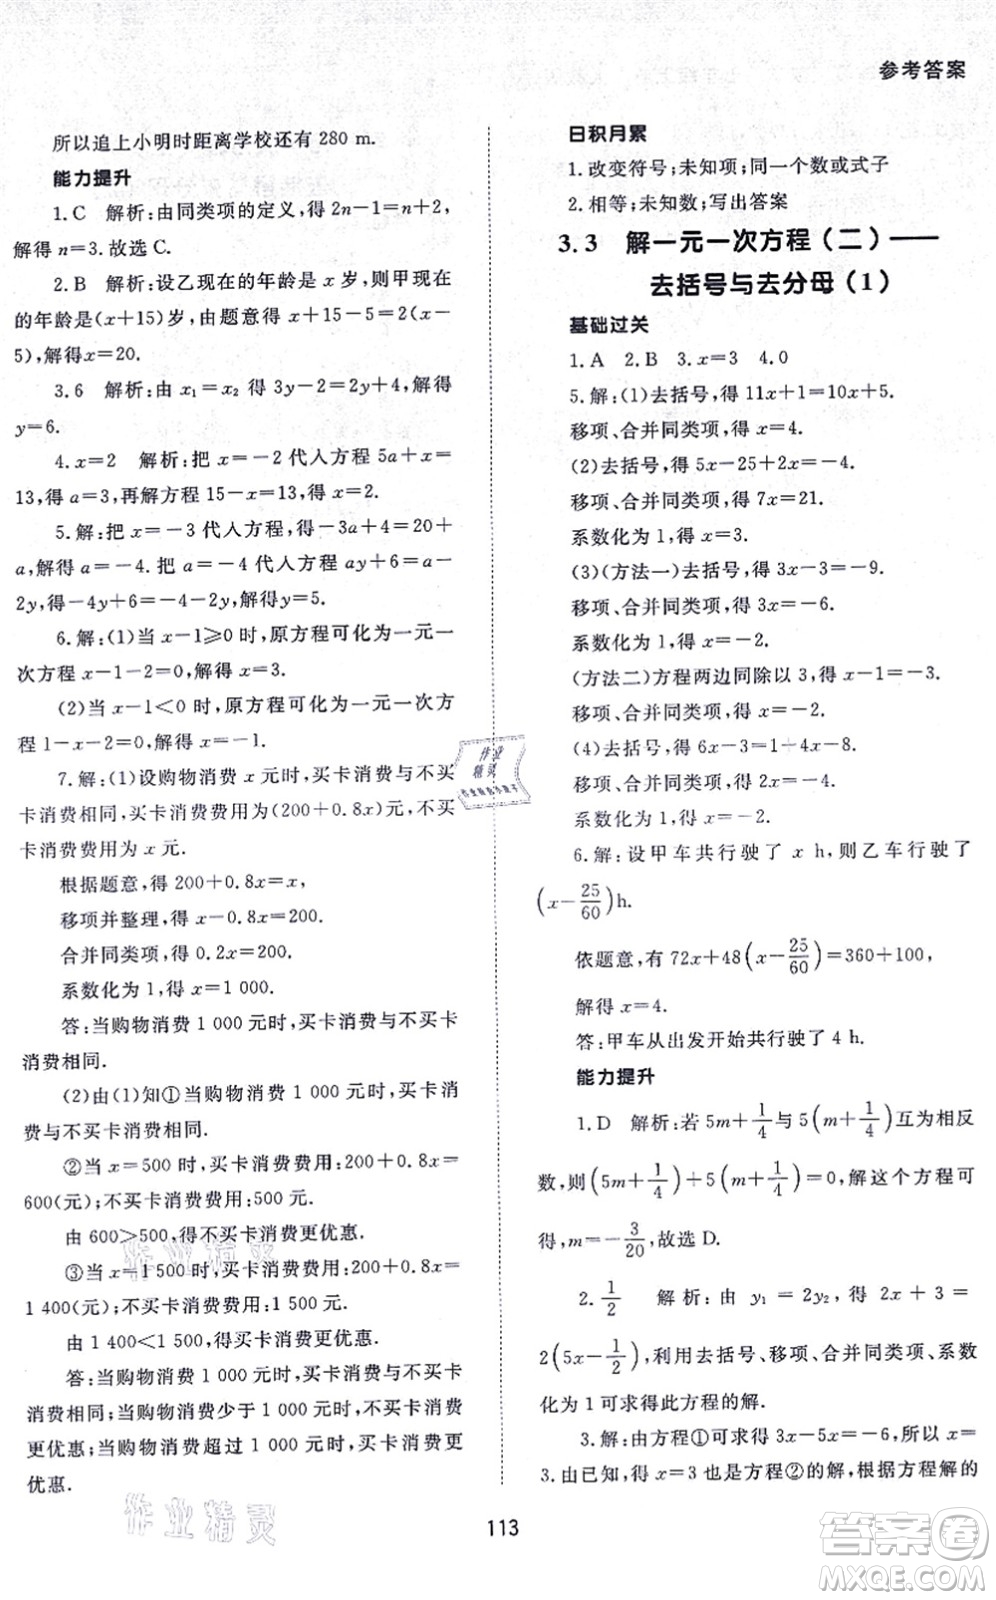 参考答案
所以追上小明时距离学校还有 280 m.
能力提升
1.C 解析:由同类项的定义,得 2n－1＝n＋2,
解得 n＝3.故选 C.
2.B 解析:设乙现在的年龄是 x 岁,则甲现在
的年龄是(x＋15)岁,由题意得 x＋15－5＝2(x－
5),解得x＝20.
3.6 解析:由 x₁＝x₂ 得 3y－2＝2y＋4,解得
y＝6.
4.x＝2 解析:把 x＝－2 代入方程 5a＋x＝
13,得 a＝3,再解方程 15－x＝13,得 x＝2.
5.解:把 x＝－3 代入方程,得－3a＋4＝20＋
a,解得 a＝－4.把 a＝－4 代入方程 ay＋6＝a－
2y,得－4y＋6＝－4－2y,解得y＝5.
6.解:(1)当 x－1≥0 时,原方程可化为一元一
次方程 x－1－2＝0,解得 x＝3.
(2)当 x－1＜0 时,原方程可化为一元一次方程
1－x－2＝0,解得 x＝－1.
7.解:(1)设购物消费 x 元时,买卡消费与不买
卡消费相同,买卡消费费用为(200＋0.8x)元,不买
卡消费费用为 x 元.
根据题意,得 200＋0.8x＝x,
移项并整理,得 x－0.8x＝200.
合并同类项,得 0.2x＝200.
系数化为 1,得 x＝1 000.
答:当购物消费 1 000 元时,买卡消费与不买卡
消费相同.
(2)由(1)知①当购物消费 1 000 元时,买卡消
费与不买卡消费相同.
②当 x＝500 时,买卡消费费用:200＋0.8x＝
600(元);不买卡消费费用:500 元.
由 600＞500,得不买卡消费更优惠.
③当x＝1 500 时,买卡消费费用:200＋0.8x＝
1 400(元);不买卡消费费用:1 500 元.
由 1 400＜1 500,得买卡消费更优惠.
答:当购物消费 1 000 元时,买卡消费与不买卡
消费相同;当购物消费少于 1 000 元时,不买卡消费
更优惠;当购物消费超过 1 000 元时,买卡消费更
优惠.
日积月累
1.改变符号;未知项;同一个数或式子
2.相等;未知数;写出答案
3.3 解一元一次方程(二)——
去括号与去分母(1)
基础过关
1.A 2.B 3.x＝3 4.0
5.解:(1)去括号,得 11x＋1＝10x＋5.
移项、合并同类项,得 x＝4.
(2)去括号,得 5x－25＋2x＝－4.
移项、合并同类项,得 7x＝21.
系数化为 1,得 x＝3.
(3)(方法一)去括号,得 3x－3＝－9.
移项、合并同类项,得 3x＝－6.
系数化为 1,得 x＝－2.
(方法二)方程两边同除以 3,得 x－1＝－3.
移项、合并同类项,得 x＝－2.
(4)去括号,得 6x－2＝4x－8.
移项、合并同类项,得 2x＝－4.
系数化为 1,得 x＝－2.
6.解:设甲车共行驶了 x h,则乙车行驶了
(x－25/60)h.
依题意,有 72x＋48(x－25/60)＝360＋100,
解得 x＝4.
答:甲车从出发开始共行驶了 4 h.
能力提升
1.D 解析:若 5m＋1/4与 5(m＋1/4)互为相反
数,则(5m＋1/4)＋5(m＋1/4)＝0,解这个方程可
得,m＝－3/20,故选 D.
2.1/2 解析:由 y₁＝2y₂,得 2x＋3＝
2(5x－1/2),利用去括号、移项、合并同类项、系数
化为 1 可求得此方程的解.
3.解:由方程①可求得 3x－5x＝－6,x＝
3.由已知,得 x＝3 也是方程②的解,根据方程解的
113
作业
精灵
作业精灵
作业精灵
答案卷
MXQE.COM